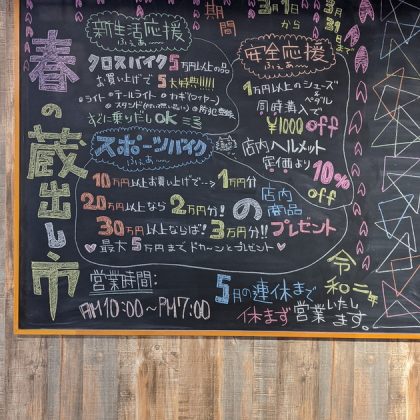 春の蔵出し市
期間
3月1日
から
3月31日
まで
新生活応援
ふぇあ〜
クロスバイク5万円以上の品
お買い上げで5大特典!!!!!
・ライト・テールライト・カギ(ワイヤー)
・防犯登録
すぐに乗りだしOK
安全応援
ふぇあ〜
1万円以上のシューズ
&
ペダル
同時購入で
¥1000 off
店内ヘルメット
定価より10%
off
スポーツバイク
ふぇあ〜
10万円以上お買い上げで…→1万円分
20万円以上なら2万円分!
30万円以上ならば!3万円分!!
の
店内
商品
プレゼント
♥最大5万円までドカーンとプレゼント♥
営業時間:
AM10:00〜PM7:00
令和二年
5月の連休まで
休まず営業いたし
ます。